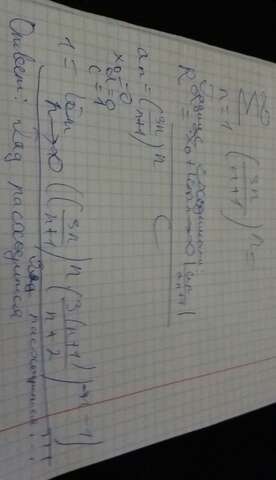 ∞
∑ (3n/(n+1))^n =
n=1
сходимости:
R = x₀ + lim n→∞ |
aₙ = (3n/(n+1))^n
x₀ = 0
c = 1
1 = lim n→∞ ((3n/(n+1))^n (3(n+1)/(n+2))^(-n-1))
Ряд расходится
Ответ: Ряд расходится